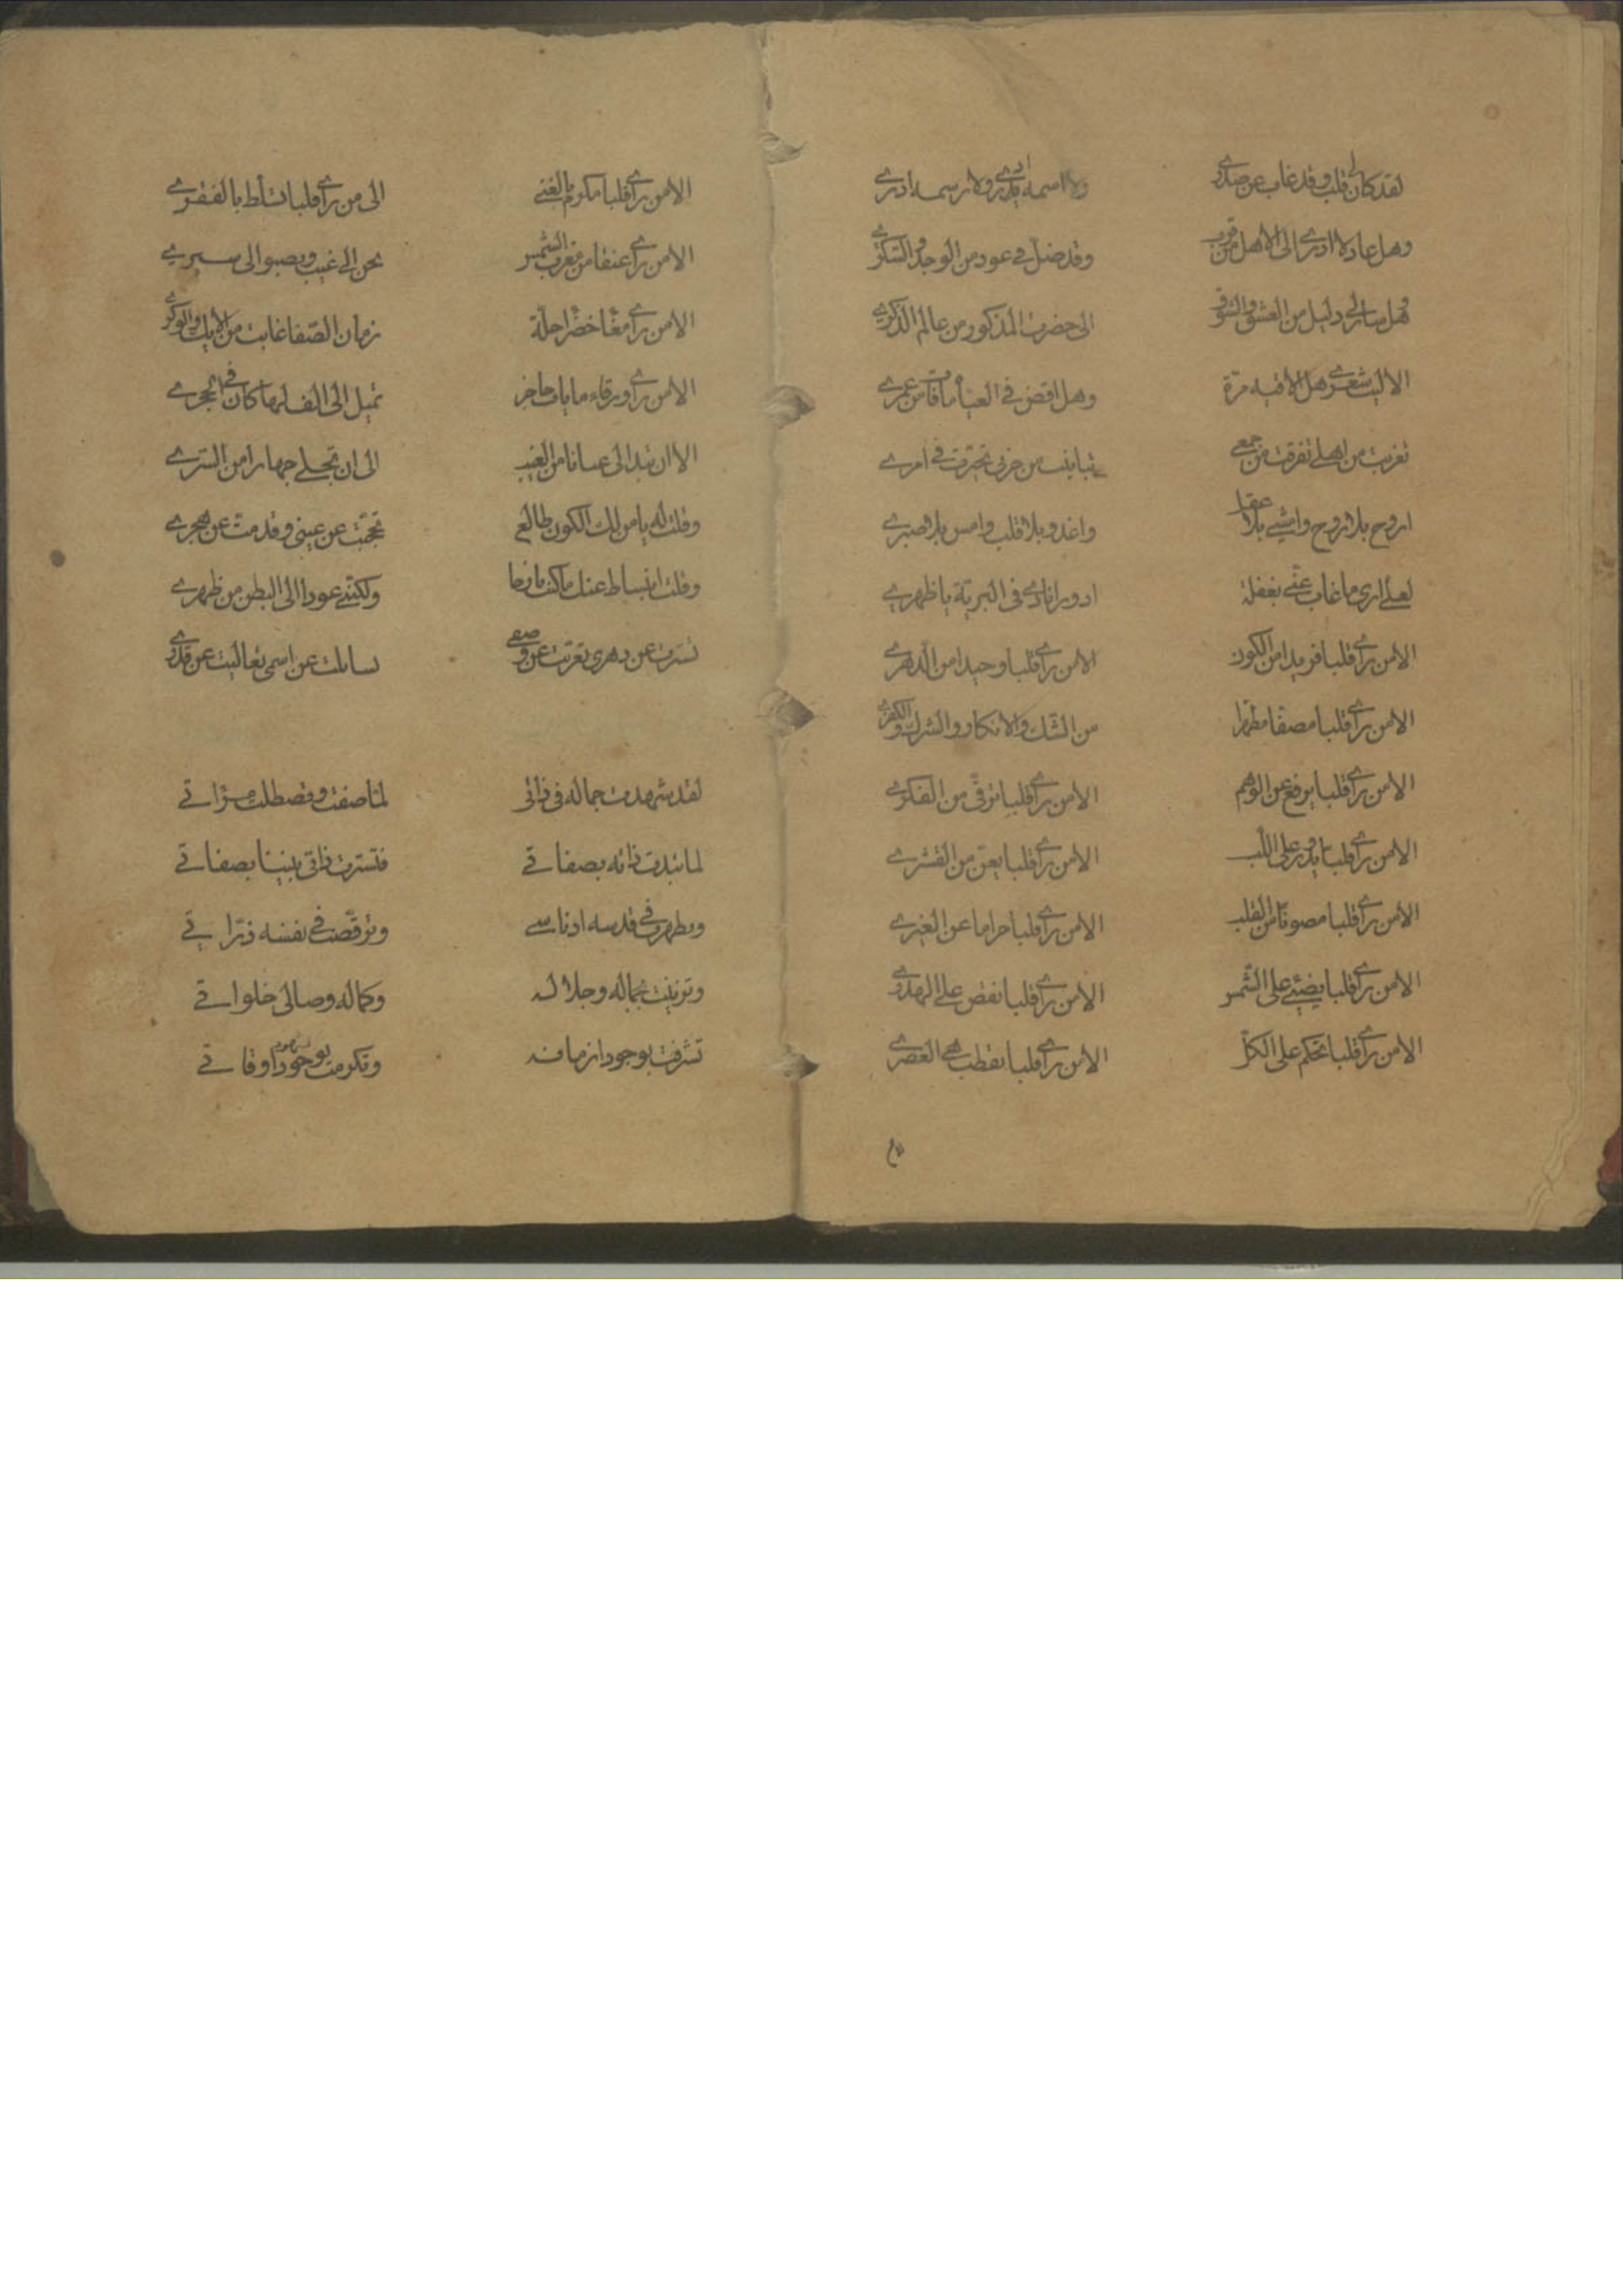 لقد كان لي قلب وقد غاب عن صدري
ولا اسمه ادري ولا رسمه ادري
وهل عاد لا ادري الى الاهل من قرب
وقد ضل في عود من الوجد والسكري
وهل سالي دليل من العشق والشوق
الى حضرت المذكور من عالم الذكري
الا ليت شعري هل الاقيه مرة
وهل اقض في العشا ما فات من عمري
تغربت من اهلي تفرقت من جمعي
من حزني تحيرت في امري
اروح بلا روح وامشي بلا عقل
واغدو بلا قلب وامس بلا صبري
لعلي ارى ما غاب عني بغفلة
ادور انادي في البرية يا ظهري
الا من رأى قلبا فريدا من الكون
الا من رأى قلبا وحيدا من الدهري
الا من رأى قلبا مصفا مطهرا
من الشك والانكار والشرك والكفري
الا من رأى قلبا يرفع عن الوهم
الا من رأى قلبا ترقى من الفكري
الا من رأى قلبا يدور على اللب
الا من رأى قلبا يعق من القشري
الا من رأى قلبا مصونا من القلب
الا من رأى قلبا حراما عن الغيري
الا من رأى قلبا يضيئ على الشمس
الا من رأى قلبا نفض على
الا من رأى قلبا تحكم على الكل
الا من رأى قلبا بقطب العصري
الا من رأى قلبا بالغنى
الى من رأى قلبا تسلط بالفقري
الا من رأى عنقا من مغرب الشمس
نحن الى غيب ويصبو الى سري
الا من رأى خضرا حلة
زمان الصفا غابت من الايك والوكر
الا من رأى ورقاء
تميل الى الف لها كان في الحجري
الا ان تبدا لي عيانا من الغيب
الى ان تجلى جهارا من الستري
وقلت له يا من لك الكون طالع
تحجبت عن عيني وقد مت عن هجري
وقلت انبساط عنك ما كنت
ولكنني عودا الى البطن من ظهري
تسترت عن دهري تعريت عن وصفي
تسائلت عن اسمي تعاليت عن قدري
لقد شهدت جماله في ذاتي
لما صفت وتصقلت مرآتي
لما تبدت ذاته بصفاتي
فتسترت ذاتي بصفاتي
وتطهرت في قدسه ادناسي
وترقصت في نفسه ذراتي
وتزينت بجماله وجلاله
وكماله وصالى خلواتي
تشرفت بوجود ازمانه
وتكرمت بوجود اوقاتي